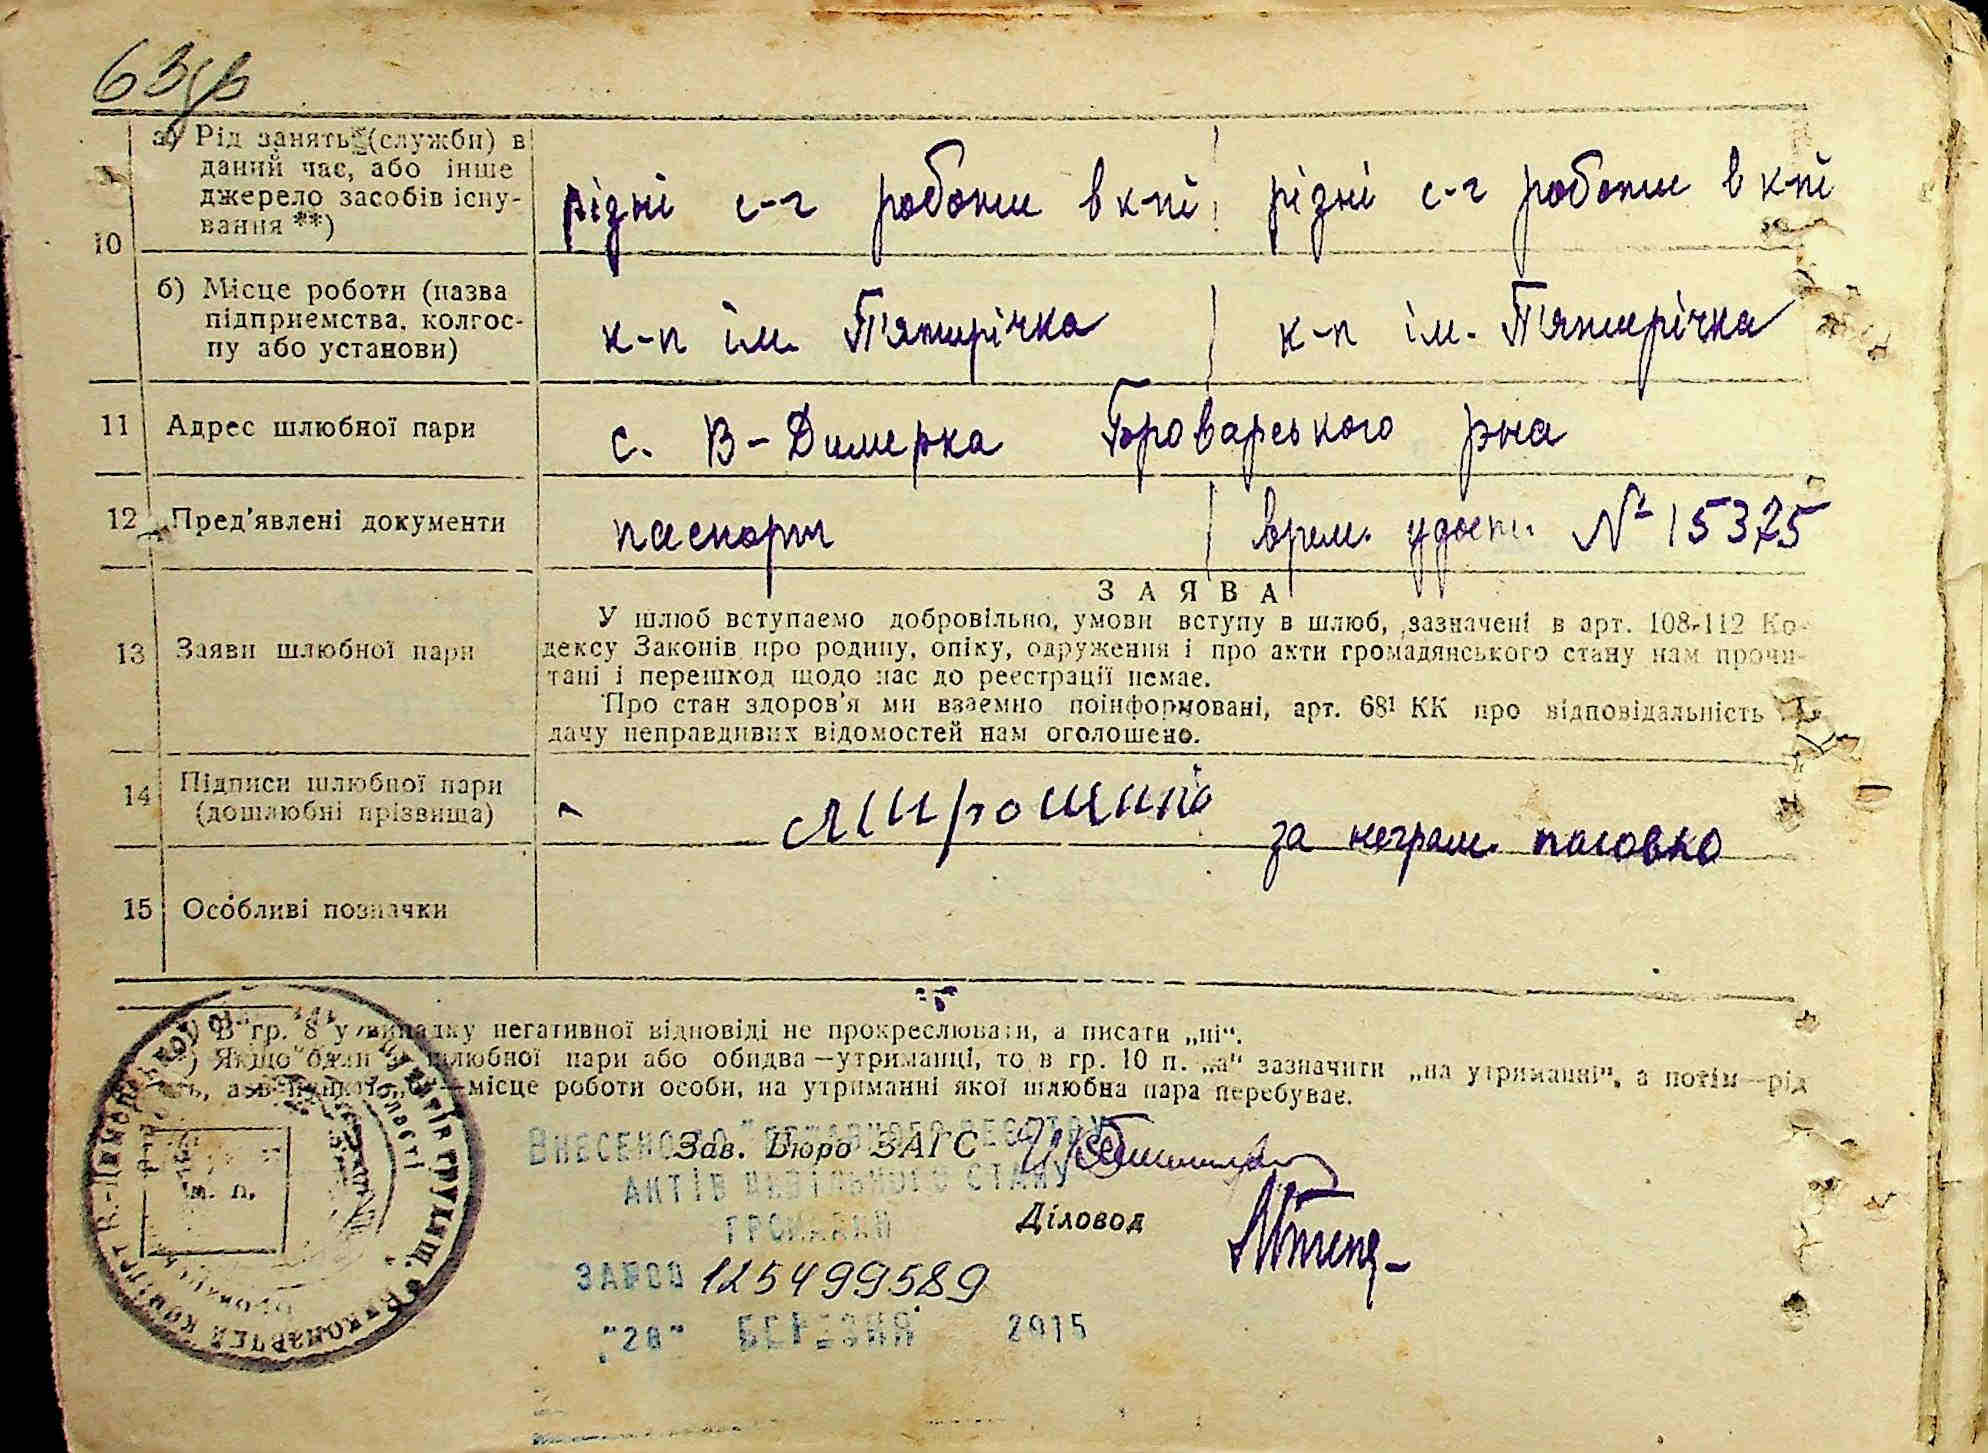 63зв
а) Рід занять (служби) в
даний час, або інше
джерело засобів існу-
вання **)
рідні с-г роботи в к-пі
різні с-г роботи в к-пі
10
б) Місце роботи (назва
підприємства, колгос-
пу або установи)
к-п ім. П'ятирічка
к-п ім. П'ятирічка
11 Адрес шлюбної пари
с. В-Димерка Броварського рна
12 Пред'явлені документи
паспорт
врем. удост. № 15325
13 Заяви шлюбної пари
ЗАЯВА
У шлюб вступаємо добровільно, умови вступу в шлюб, зазначені в арт. 108-112 Ко-
дексу Законів про родину, опіку, одруження і про акти громадянського стану нам прочи-
тані і перешкод щодо нас до реєстрації немає.
Про стан здоров'я ми взаємно поінформовані, арт. 68¹ КК про відповідальність
дачу неправдивих відомостей нам оголошено.
14 Підписи шлюбної пари
(дошлюбні прізвища)
за неграм.
15 Особливі позначки
В гр. 8 у випадку негативної відповіді не прокреслювати, а писати „ні“.
Якщо один шлюбної пари або обидва—утриманці, то в гр. 10 п. „а“ зазначити „на утриманні“, а потім—рід
місце роботи особи, на утриманні якої шлюбна пара перебуває.
Зав. Бюро ЗАГС
ВНЕСЕНО ДО ДЕРЖАВНОГО РЕЄСТРУ
АКТІВ ЦИВІЛЬНОГО СТАНУ
ГРОМАДЯН
Діловод
м. п.
125499589
"20" БЕРЕЗНЯ 2015